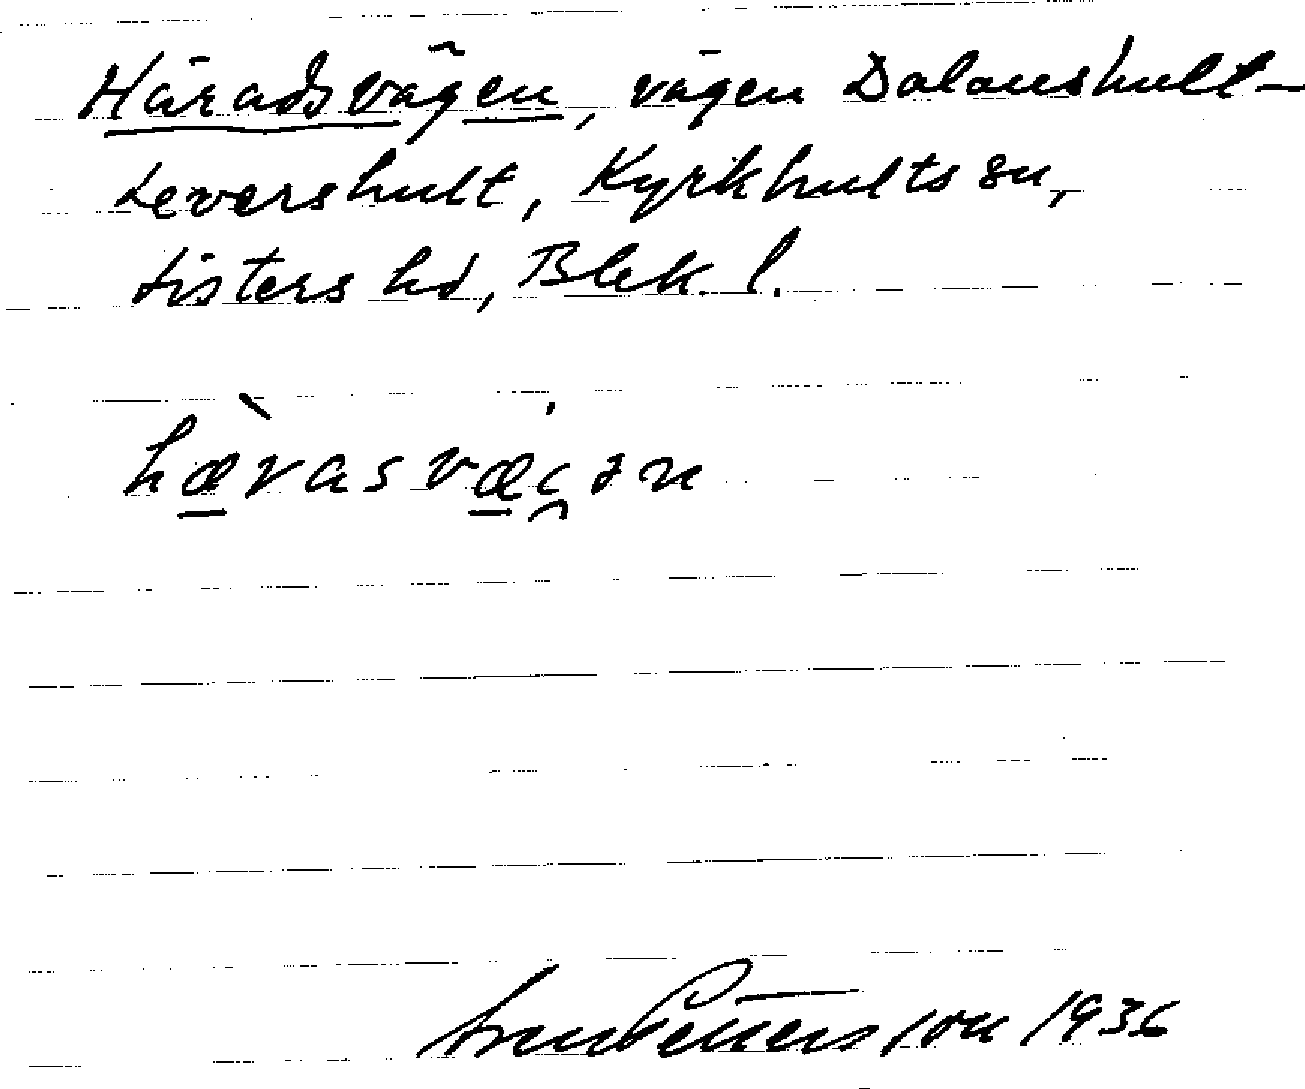 Häradsvägen, vägen Dalanshult-
Levershult, Kyrkhults sn,
Listers hd, Blek. l.
hæ̀rasvæ̱ʝən
Pettersson 1936